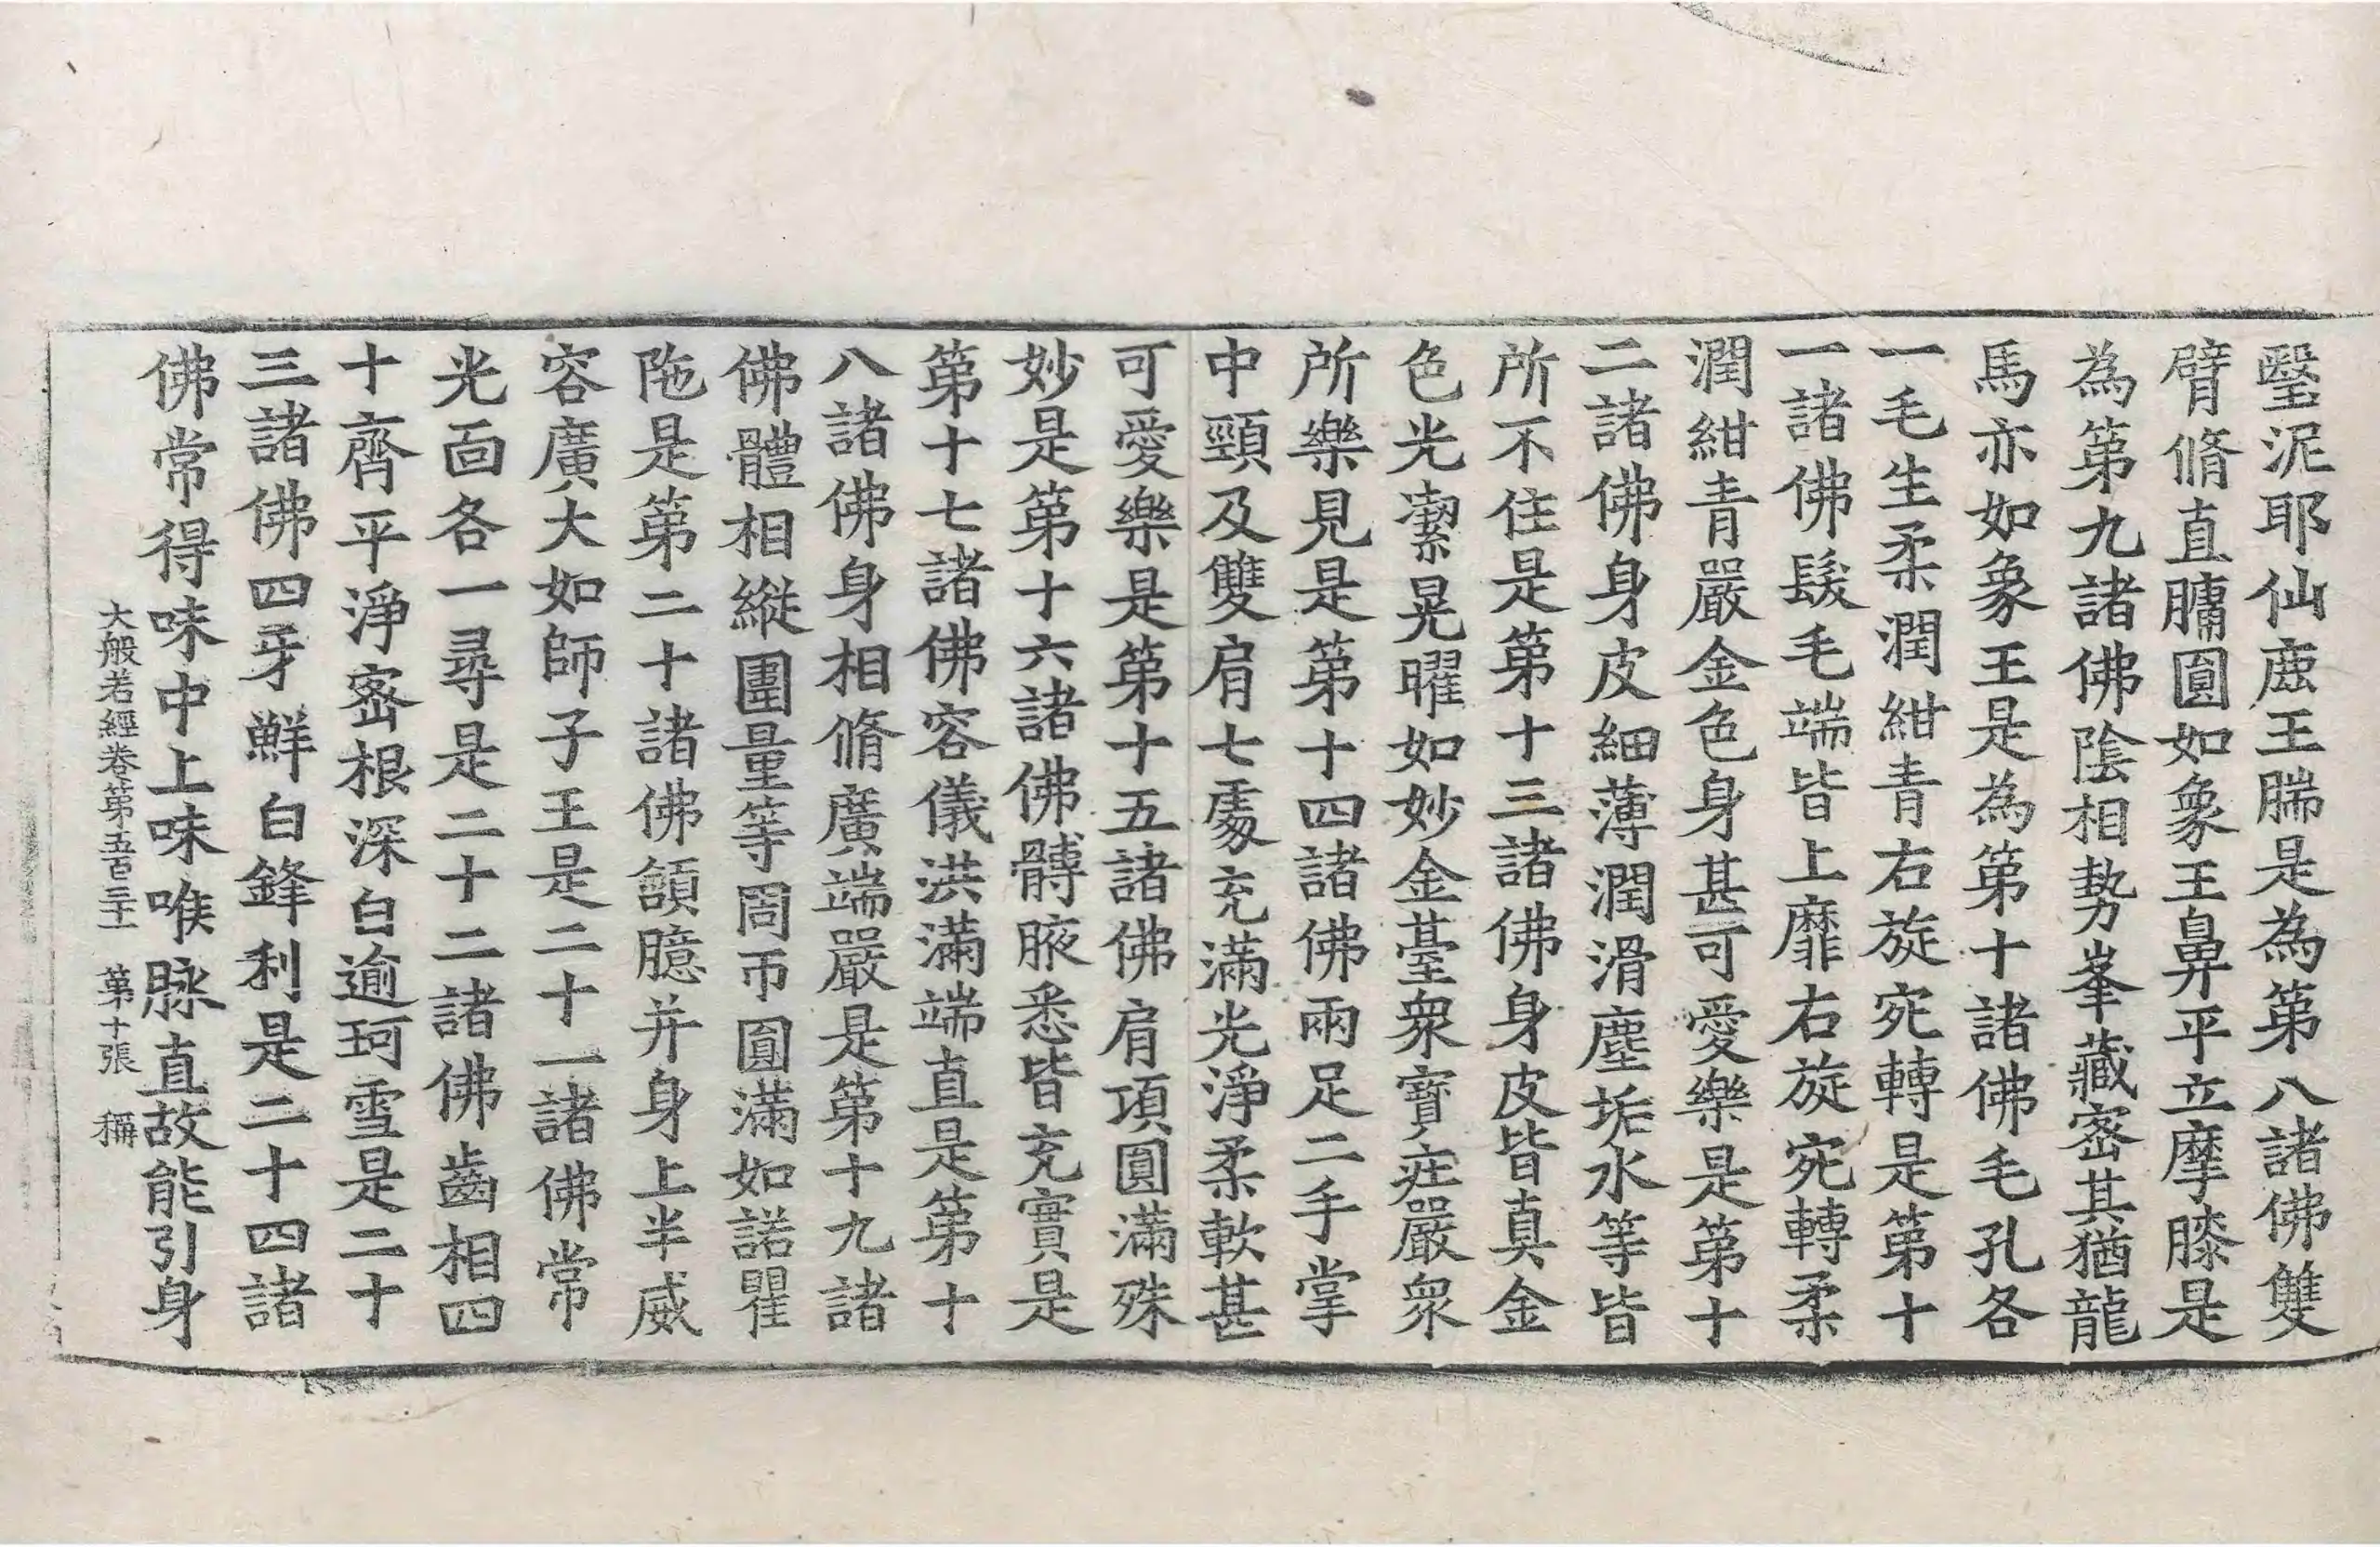 瑿泥耶仙鹿王腨是為第八諸佛雙
臂脩直𦟛圓如象王鼻平立摩膝是
為第九諸佛陰相勢峯藏密其猶龍
馬亦如象王是為第十諸佛毛孔各
一毛生柔潤紺青右旋宛轉是第十
一諸佛髮毛端皆上靡右旋宛轉柔
潤紺青嚴金色身甚可愛樂是第十
二諸佛身皮細薄潤滑塵垢水等皆
所不住是第十三諸佛身皮皆真金
色光潔晃曜如妙金臺衆寶莊嚴衆
所樂見是第十四諸佛兩足二手掌
中頸及雙肩七處充滿光淨柔軟甚
可愛樂是第十五諸佛肩項圓滿殊
妙是第十六諸佛髆腋悉皆充實是
第十七諸佛容儀洪滿端直是第十
八諸佛身相脩廣端嚴是第十九諸
佛體相縱圍量等周帀圓滿如諾瞿
陁是第二十諸佛頷臆并身上半威
容廣大如師子王是二十一諸佛常
光面各一尋是二十二諸佛齒相四
十齊平淨密根深白逾珂雪是二十
三諸佛四牙鮮白鋒利是二十四諸
佛常得味中上味喉脉直故能引身
大般若經卷第五百三十一　第十張　稱